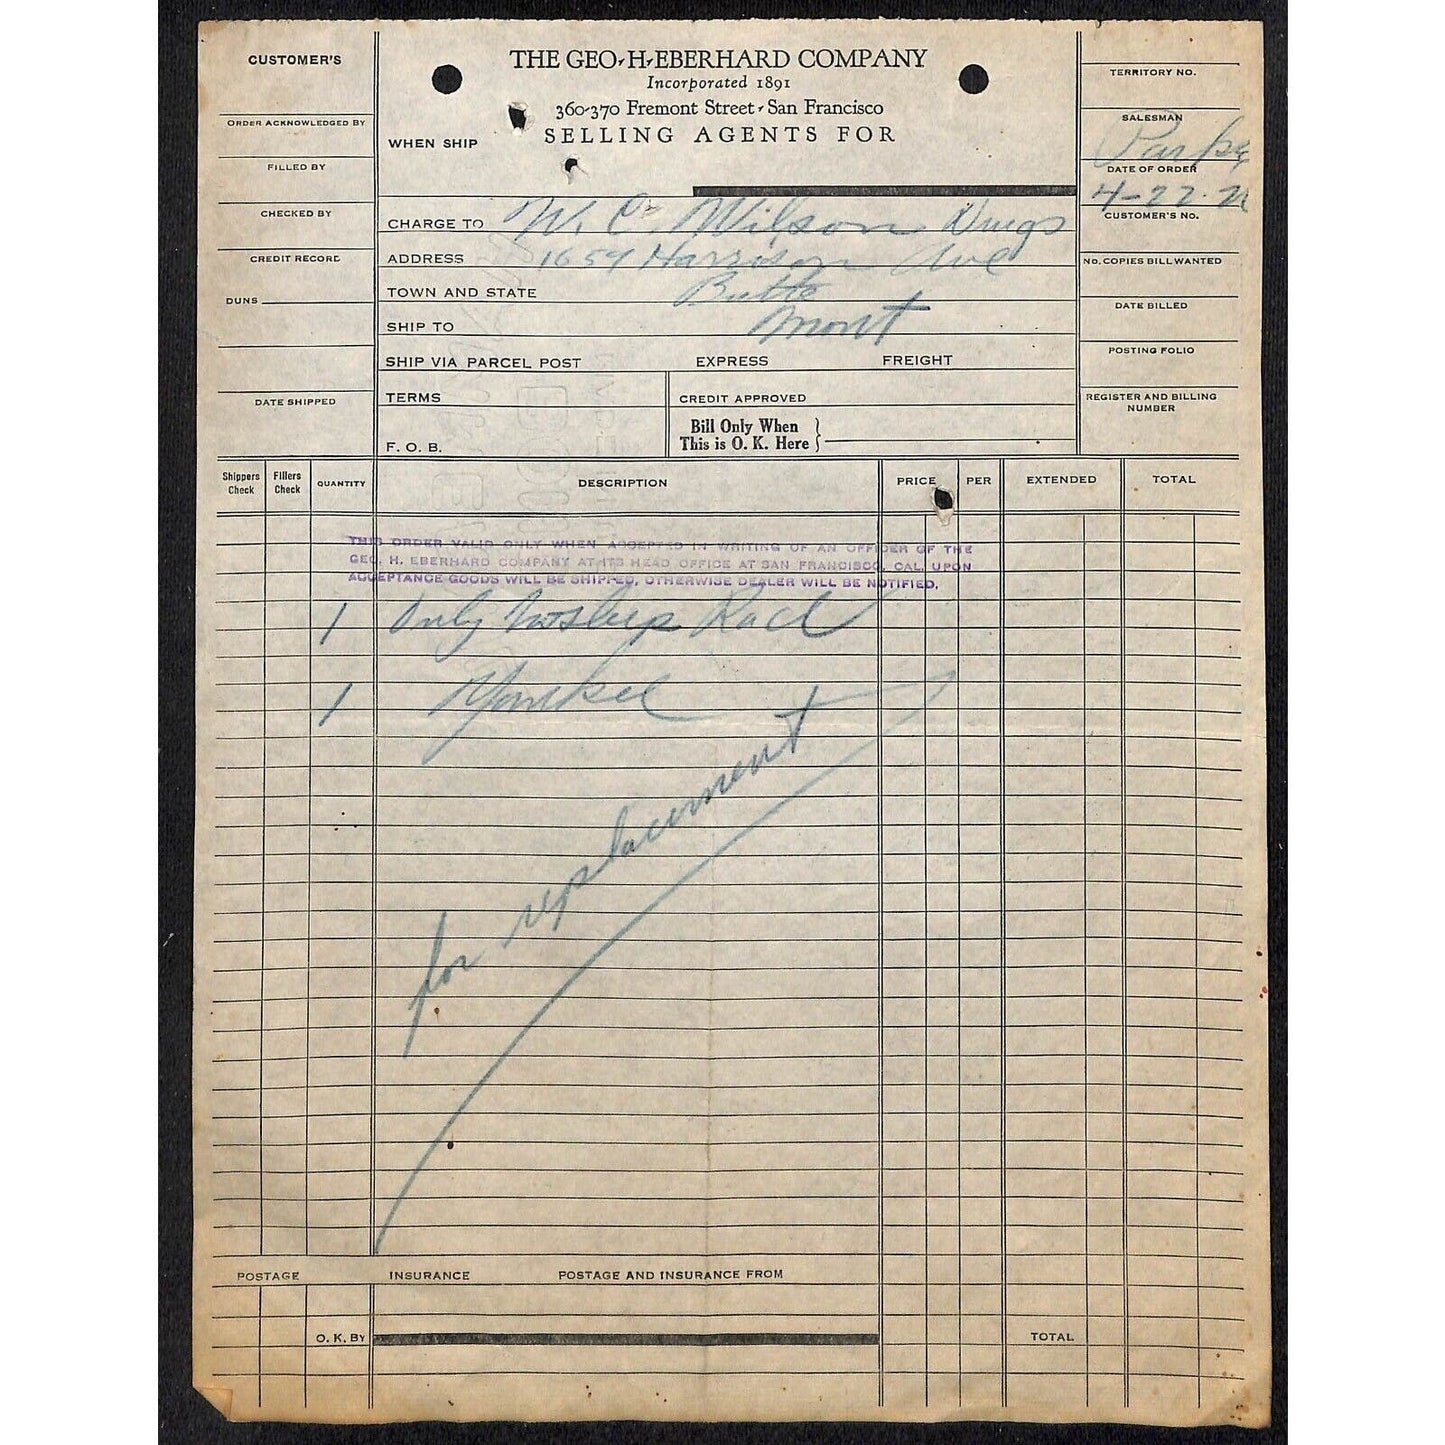 THE GEO·H·EBERHARD COMPANY
Incorporated 1891
360-370 Fremont Street · San Francisco
SELLING AGENTS FOR
CUSTOMER'S
ORDER ACKNOWLEDGED BY
FILLED BY
CHECKED BY
CREDIT RECORD
DUNS
DATE SHIPPED
WHEN SHIP
CHARGE TO W. C. Wilson Drugs
ADDRESS 1659 Harrison Ave
TOWN AND STATE Butte
SHIP TO Mont
SHIP VIA PARCEL POST EXPRESS FREIGHT
TERMS
CREDIT APPROVED
F. O. B.
Bill Only When
This is O. K. Here
TERRITORY NO.
SALESMAN
DATE OF ORDER
4-22-
CUSTOMER'S NO.
NO. COPIES BILL WANTED
DATE BILLED
POSTING FOLIO
REGISTER AND BILLING
NUMBER
Shippers Check Fillers Check QUANTITY DESCRIPTION PRICE PER EXTENDED TOTAL
THIS ORDER VALID ONLY WHEN ACCEPTED IN WRITING OF AN OFFICER OF THE
GEO. H. EBERHARD COMPANY AT ITS HEAD OFFICE AT SAN FRANCISCO, CAL. UPON
ACCEPTANCE GOODS WILL BE SHIPPED, OTHERWISE DEALER WILL BE NOTIFIED.
1 Only
1
for replacement
POSTAGE INSURANCE POSTAGE AND INSURANCE FROM
O. K. BY TOTAL